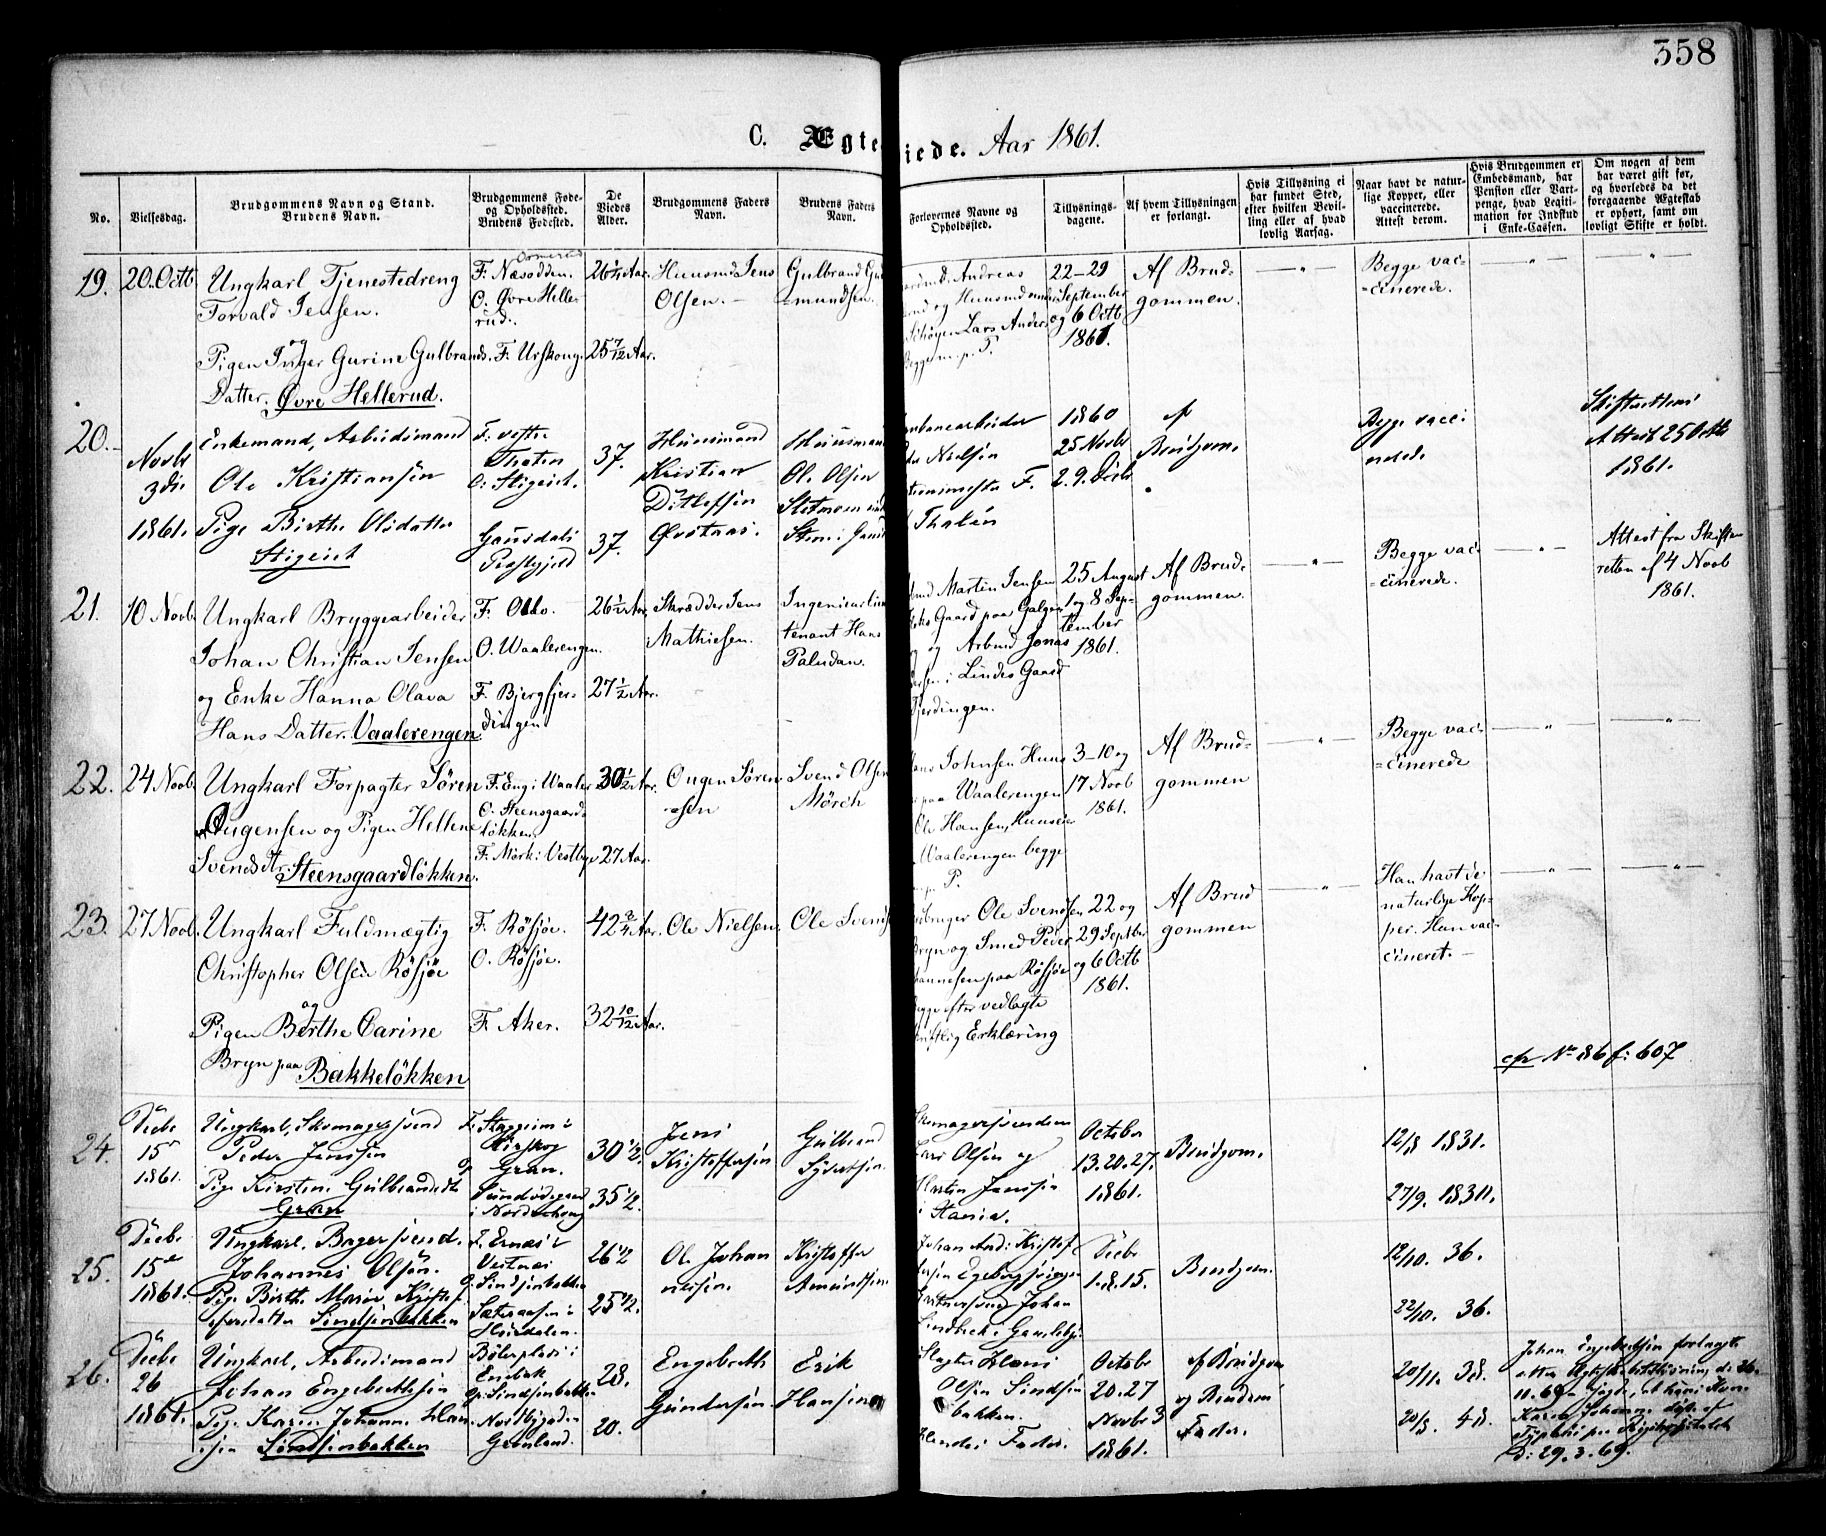 358
C. Ægteviede. Aar 1861.
No.
Vielsesdag.
Brudgommens Navn og Stand.
Brudens Navn.
Brudgommens Føde-
og Opholdssted.
Brudens Fødested.
De
Viedes
Alder.
Brudgommens Faders
Navn.
Brudens Faders
Navn.
Forlovernes Navne og
Opholdssted.
Tillysnings-
dagene.
Af hvem Tillysningen
er forlangt.
Hvis Tillysning ei
har fundet Sted,
efter hvilken Bevil-
ling eller af hvad
lovlig Aarsag.
Naar havt de natur-
lige Kopper, eller
vaccinerede.
Attest derom.
Hvis Brudgommen er
Embedsmand, har
Pension eller Vart-
penge, hvad Legiti-
mation for Indskud
i Enke-Cassen.
Om nogen af dem
har været gift før,
og hvorledes da det
foregaaende Ægteskab
er ophørt, samt om
lovligt Skifte er holdt.
19. 20. Octb.
Ungkarl Tjenestedreng
Torvald Jensen.
og
Pigen Inger Gurine Gulbrands
Datter. Øvre Hellerud.
F. Næsodden.
O. Øvre Helle
rud.
F. Urskoug.
26 1/2 Aar.
25 7/12 Aar.
Huusmd Jens
Olsen.
Gulbrand Gud
=mundsen.
Andreas
og Huusmd
Lars Anders
Begge m. p. P.
22-29
September
og 6 Octb
1861.
Af Brud=
gommen.
Begge vac=
=cinerede.
20.
Novbr
3die
1861.
Enkemand, Arbeidsmand
Ole Kristiansen
Pige Birthe Olsdatter
Stigeiet
F: vestre
Thoten
O: Stigeiet.
Gausdals
Præstegjeld
37.
37.
Huusmand
Kristian
Ditlefsen
Huusman
Ole Olsen
Nielsen
F.
Thalén
1860
25 Novbr
2. 9. Decbr
af
Brudgom.
Begge vacci
nerede.
Skifterettens
Attest 25 Octbr
1861.
21. 10 Novb.
Ungkarl Bryggearbeider
Johan Christian Jensen
og Enke Hanna Olava
Hans Datter. Vaalerengen.
F. Oslo.
O. Waalerengen.
F. Bjergfjer=
dingen
26 1/2 Aar.
27 1/2 Aar.
Skrædder Jens
Mathiesen.
Ingenieurlieu
tenant Hans
Paludan.
Martin Jensen
Gaard paa Galgen
og Arbmd Jonas
i Lindes Gaard
Fjerdingen.
25 August
1 og 8 Sep=
tember
1861.
Af Brud=
gommen.
Begge vac=
=cinerede.
Attest fra Skifte
retten af 4 Novb
1861.
22. 24 Novb.
Ungkarl Forpagter Sören
Ougensen og Pigen Hellene
Svendsdtr. Steensgaardløkken.
F. Eng i Waaler
O. Steensgaards
løkken.
F. Mørk i Vestbye
30 1/2 Aar.
27 Aar.
Ougen Sören
=sen
Svend Olsen
Mörch
Johnsen Huus
paa Waalerengen
Ole Hansen, Huuseier
Waalerengen begge
P.
3-10 og
17 Novb
1861.
Af Brud=
gommen
Begge vac=
=cinerede
23. 27 Novb.
Ungkarl Fuldmægtig
Christopher Olsen Røsjøe
og
Pigen Berthe Carine
Bryn paa Bakkeløkken
F. Røsjøe.
O. Røsjøe.
F. Aker.
42 3/4 Aar.
32 10/12 Aar.
Ole Nielsen.
Ole Svends
Ole Svendsen
Bryn og Smed Peder
paa Røsjøe
efter vedlagte
Erklæring
22 og
29 Septbr
og 6 Octb
1861.
Af Brud
gommen
Han havt de
naturlige Kop=
per. Hun vac=
cineret.
cfr No 86 f: 607
24.
Decbr
15
1861.
Ungkarl, Skomagersvend
Peder Jenssen
Pige Kirsten Gulbrandsdtr
Grøn
30 1/2.
35 1/2.
Jens
Kristoffersen
Gulbrand
Syversen.
Skomagersvendene
Lars Olsen og
Martin Jenssen
October
13. 20. 27.
1861.
Brudgom.
12/8 1831.
27/9. 1830.
25.
Decbr
15
1861.
Ungkarl, Bagersvend.
Johannes Olsen.
Pige Birthe Marie Kristof
fersdatter Sindsenbakken
O. Sindsenbakken
Hurdalen.
26 1/2
25 1/2.
Ole Johan
nesen.
Kristoffer
Amundsen
Johan And: Kristof
Johan
Lindbeck, Gamlebye
Decbr
1. 8. 15.
Brudgom.
12/10. 36.
22/10. 36.
26.
Decbr
26
1861.
Ungkarl, Arbeidsmand
Johan Engebrethsen
Pige Karen Johanne Han
sen Sindsenbakken
Enebak
O. Sindsenbakken
Grønland.
28.
20.
Engebreth
Gundersen
Erik
Hansen
Hans
Olsen Sindsen
bakken.
Brudens Fader.
October
20. 27
Novbr 3
1861.
af Brudgom
og Brudens
Fader.
20/11. 38.
20/8. 48.
Johan Engebretsen forlagde
Karen Johanne døde af
D: 29. 3. 69.